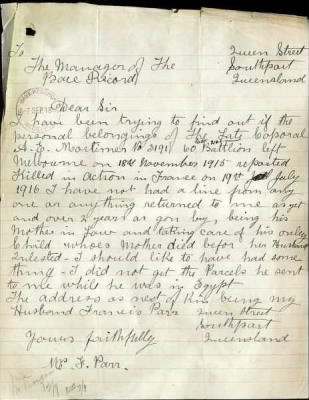 To
The Manager of The
Base Record
Queen Street
Southport
Queensland
Dear Sir
I have been trying to find out if the
personal belongings of The Late Coporal
A. E. Mortimer No 3191 60 Battlion left
Melbourne on 18th November 1915 reported
Killed in Action in France on 19th July
1916 I have not had a line from any
one or anything returned to me as yet
and over 2 years as gon by, being his
Mother in Law and taking care of his only
Child whoes Mother died befor her Husband
Inlested - I should like to have had some
thing - I did not get the Parcels he sent
to me while he was in Egypt
The address as next of Kin being my
Husband Francis Parr
Queen Street
Southport
Queensland
Yours faithfully
Mrs F. Parr.